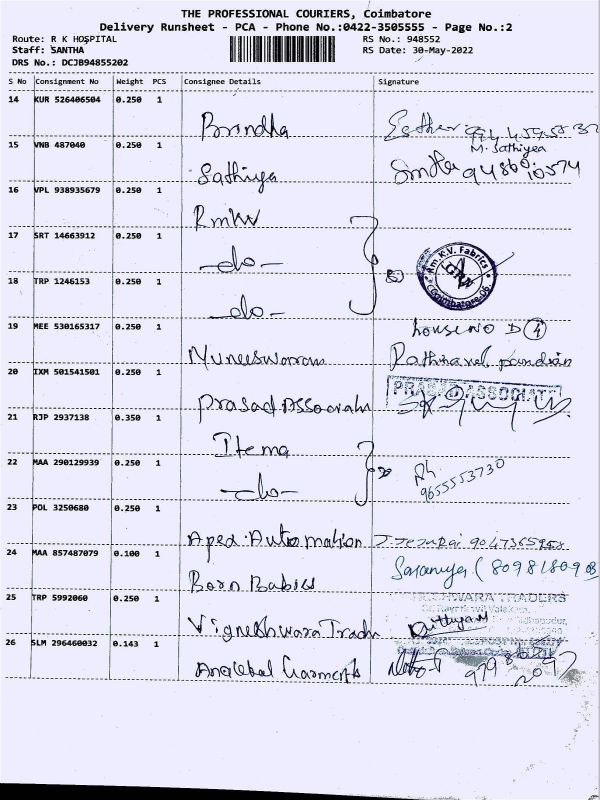 THE PROFESSIONAL COURIERS, Coimbatore
Delivery Runsheet - PCA - Phone No.:0422-3505555 - Page No.:2
Route: R K HOSPITAL RS No.: 948552
Staff: SANTHA RS Date: 30-May-2022
DRS No.: DCJB94855202
S No Consignment No Weight PCS Consignee Details Signature
14 KUR 526406504 0.250 1
Brindha Esther
15 VNB 487040 0.250 1 M. Sathiyea
Sathiya Smitha 94860 10574
16 VPL 938935679 0.250 1
Rmkv
17 SRT 14663912 0.250 1
-do- Rm K.V. Fabrics
18 TRP 1246153 0.250 1 Coimbatore-06.
-do-
19 MEE 530165317 0.250 1 house NO D 4
Muneeswaran
20 IXM 501541501 0.250 1 PRASAD ASSOCIATE
Prasad Associats
21 RJP 2937138 0.350 1
Itema
22 MAA 290129939 0.250 1
-do- 9655553730
23 POL 3250680 0.250 1
Apex Automation
24 MAA 857487079 0.100 1 Saranya
Born Babies
25 TRP 5992060 0.250 1 HWARA TRADERS
Vigneshwara Trade
26 SLM 296460032 0.143 1
Garments